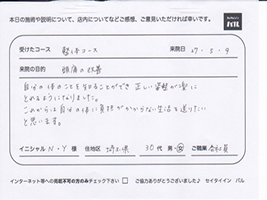 本日の施術や説明について、店内についてなどご感想、ご意見いただければ幸いです。
バル
受けたコース 整体コース 来院日 27・5・9
来院の目的 頭痛の改善
自分の体のことを知ることができ 正しい姿勢が楽に
とれるようになりました。
これからは自分の体に負担がかからない生活を送りたい
と思います。
イニシャル N・Y 様 住地区 埼玉県 30代 男・女 ご職業 会社員
インターネット等への掲載不可の方のみチェック下さい □ ご協力ありがとうございました♪ セイタイイン バル